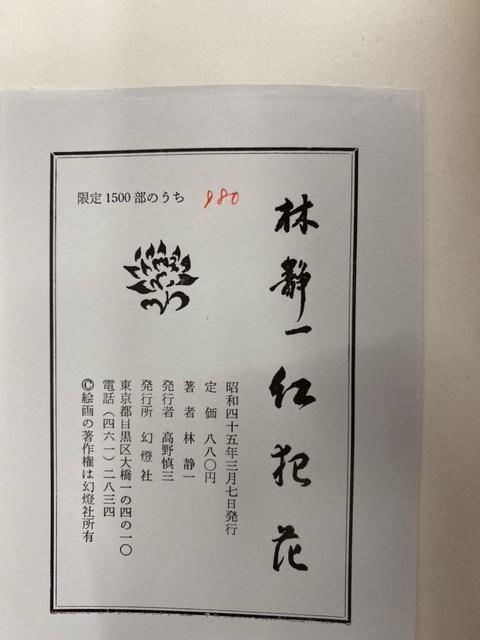 林静一 紅犯花
昭和四十五年三月七日発行
定 価 八八〇円
著 者 林 静一
発行者 高野慎三
発行所 幻燈社
東京都目黒区大橋一の四の一〇
電話(四六一)二八三四
©絵画の著作権は幻燈社所有
限定1500部のうち 980